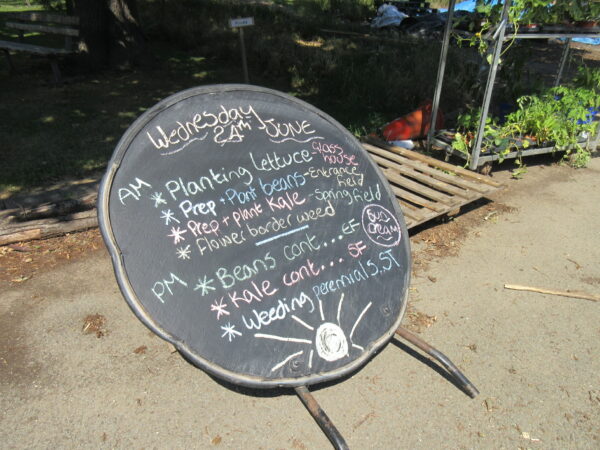 Wednesday
24th JUNE
AM * Planting lettuce - Glass house
* Prep + Plant beans - Entrance Field
* Prep + plant Kale - Spring field
* Flower border weed
PM * Beans cont... EF
* Kale cont... SF
* Weeding perennial S, ST